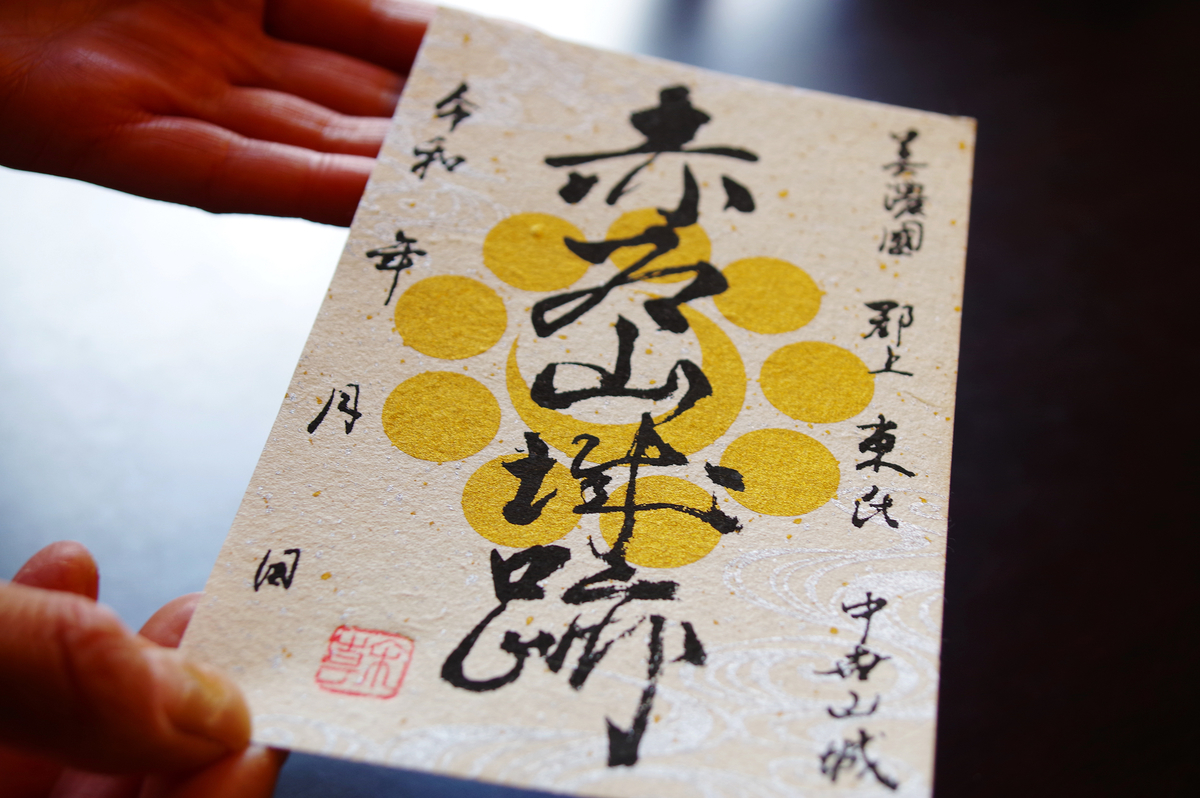 美濃國 郡上 東氏 中世山城
赤谷山城跡
令和 年 月 日